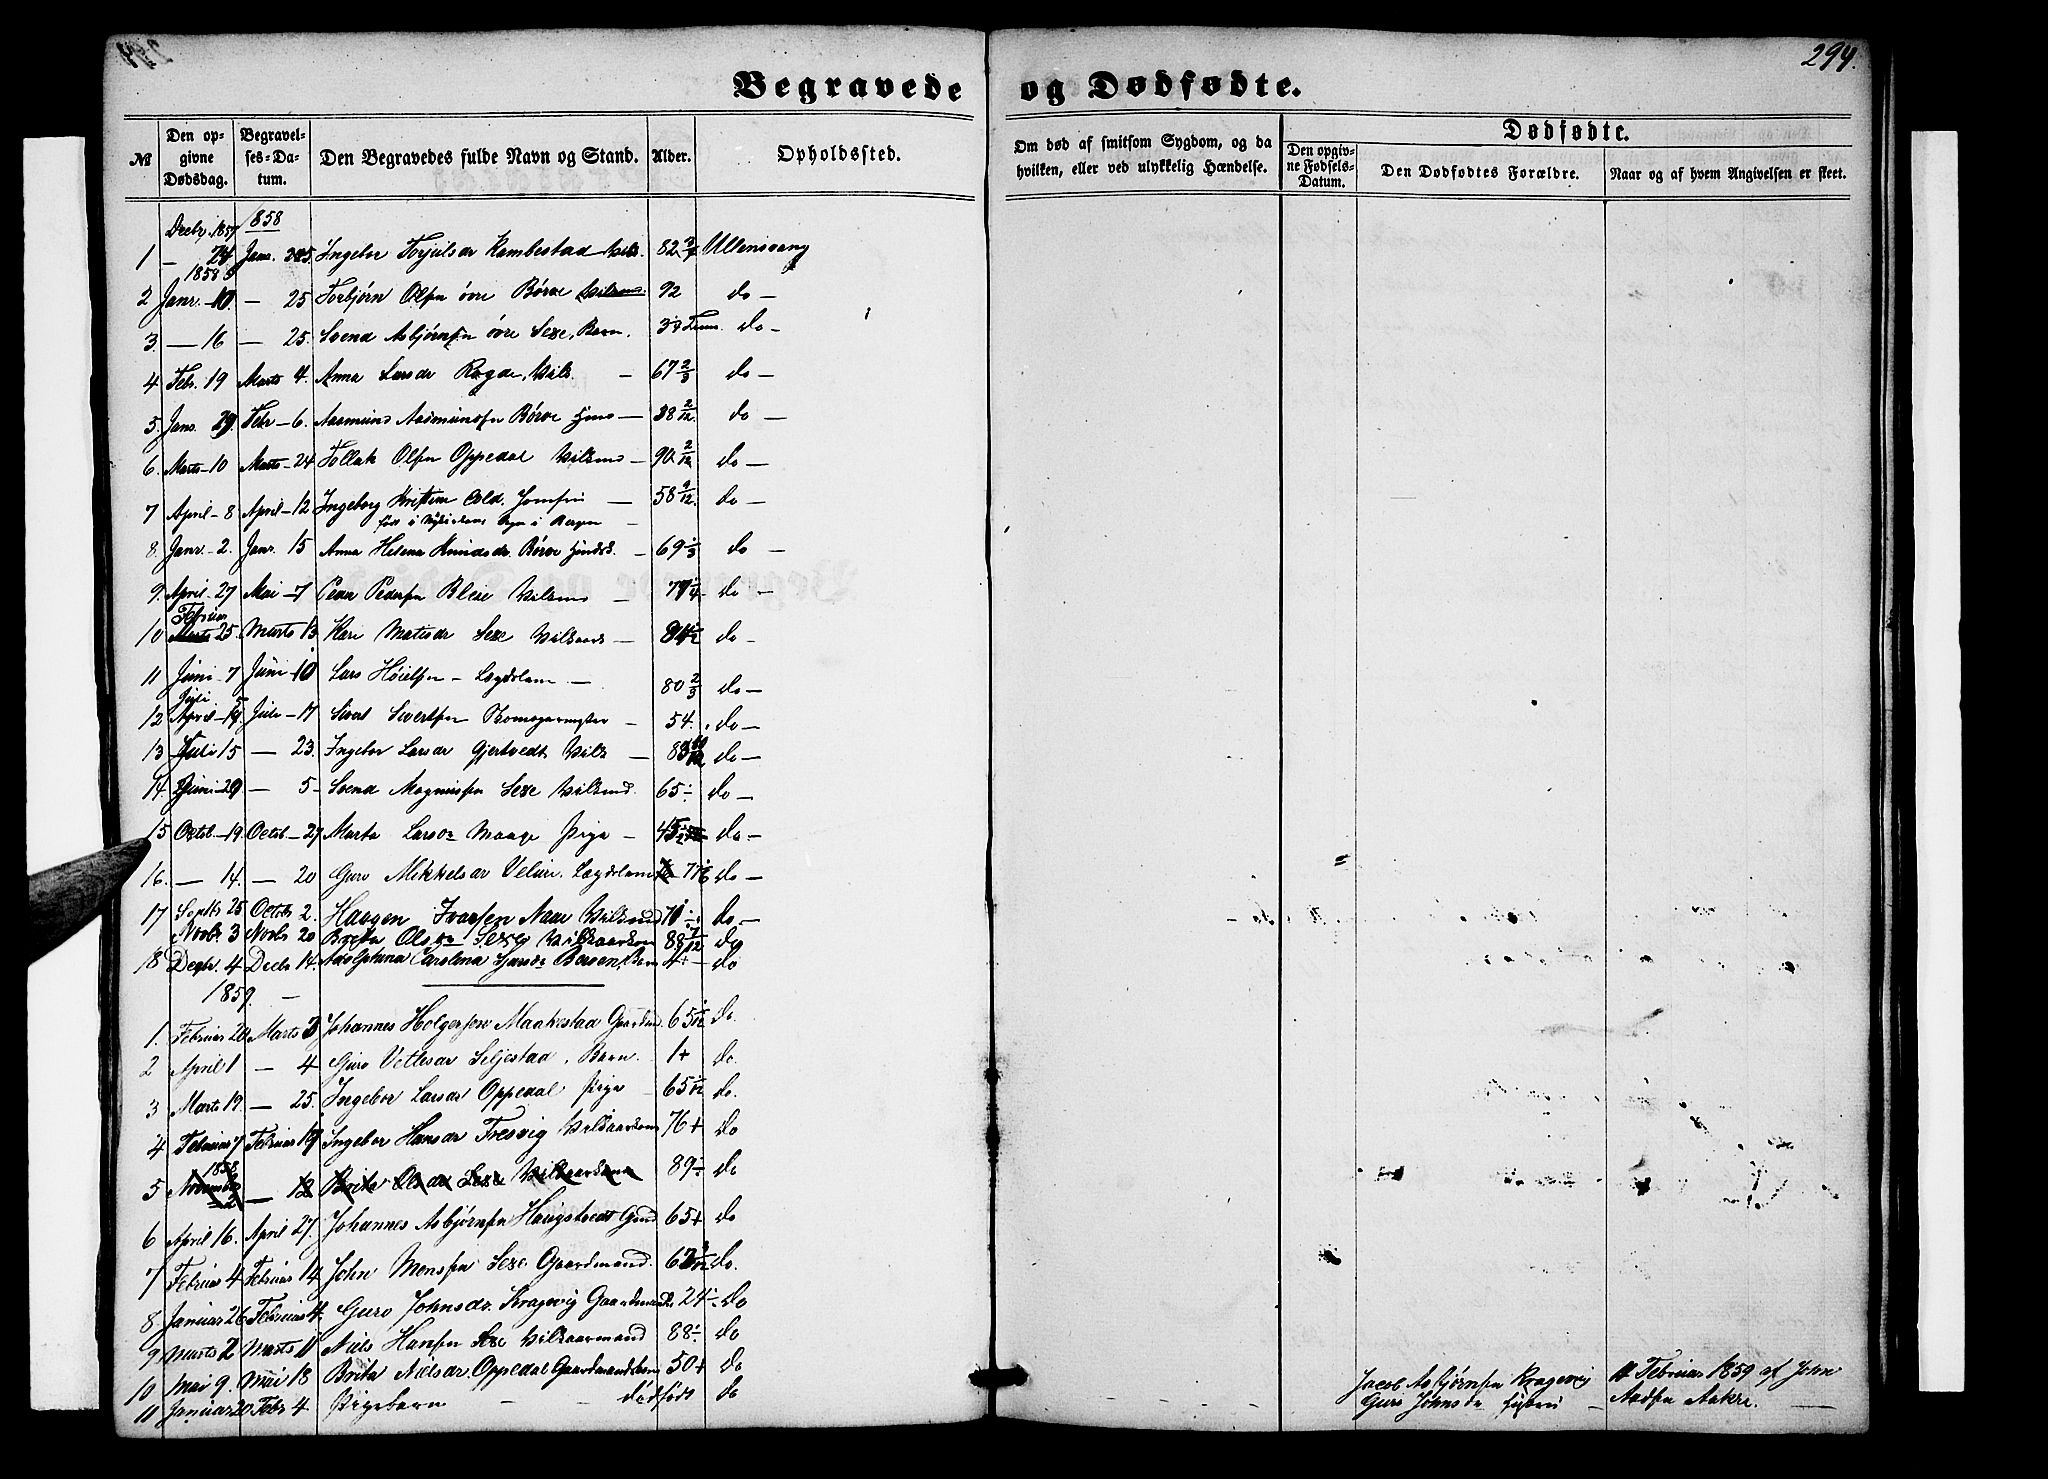 294.
Begravede og Dødfødte.
№
Den opgivne Dødsdag.
Begravelses-Datum.
Den Begravedes fulde Navn og Stand.
Alder.
Opholdssted.
Om død af smitsom Sygdom, og da hvilken, eller ved ulykkelig Hændelse.
Dødfødte.
Den opgivne Fødsels-Datum.
Den Dødfødtes Forældre.
Naar og af hvem Angivelsen er skeet.
Decbr 1857 1858
1 Janr. Ingebor Torjulsdr Kambestad Vilk. 82 Ullensvang
1858
2 Janr. 10. — 25 Torbjørn Olsen øvre Børve Vilkmd. 92 do —
3. — 16 — 25. Svend Asbjørnsen øvre Sexe, Barn. do —
4 Febr. 19 Marts 4. Anna Larsdr Ragde, Vilk. — 67 2/3 do —
5. Janr. 29. Febr — 6. Aasmund Aadmundsen Børve — 38 2/12 do —
6. Marts — 10 Marts — 24 Tollak Olsen Oppedal Vilkmd — 90 2/12 do —
7 April — 8 April — 12 Ingeborg Kristine Cold. Jomfru — 58 9/12 do —
8. Janr — 2. Janr. 15 Anna Helena Knudsdr. Børve — 69 1/3 do —
9. April — 27 Mai — 7 Peder Pedersen Bleie Vilkmd — do —
Februar
10 Marts 25. Marts 13 Kari Matisdr Sexe — do —
11 Juni — 7 Juni — 10 Lars Høielsen — Lægdslem — 80 2/3 do —
Juli 5
12 April — 19. Juli — 17 Sivert Sivertsen — 54. do —
13 Juli 15 — 23. Ingebor Larsdr Gjertvedt Vilk — do —
14. Juni — 29 — 5 — Svend Magnusen Sexe Vilkmd. 65 do —
15 Octob. — 19. Octob — 27 Marta Larsdr Maage Pige — 45 do —
16. — 14. — 20 Guro Mikkelsdr Velure. Lægdslem do —
17 Septbr 25 Octobr 2. Haagen Ivarsen Vilkmd do —
Novbr. 3 Novbr 20 Britta Olsdr Sexe 88 7/12 do
18 Decbr. 4 Decbr 14. Adolphina Carolina Bersen, Barn 4+ — do
1859. —
1. Februar 20 Marts 3 Johannes Helgesen Maakestad Gaardm. 65 do.
2 April 1 — 4 Guro Vetlesdr Seljestad, Barn. 1+ do
3 Marts 19. — 25. Ingebor Larsdr Oppedal Pige 65 do.
4 Februar 7 Februar 19 Ingebor Hansdr Tresvig 76+ do
1858
5 November — 12 Brita Olsdr Sexe Vilkaarskone 89 do
6 April 16. April 27. Johannes Asbjørnsen Haugstvedt 65+ do
7 Februar 4 Februar 14 John Monsen Sexe Gaardmand. do.
8. Januar 26 Februar 4 Guro Johnsdr. Kragevig 24 do
9 Marts 2 Marts 11 Niels Hansen Sexe Vilkaarmand 88 do
10 Mai 9. Mai 18 Brita Nielsdr Oppedal Gaardmandskone 50+ do
11 Januar 20 Febr 4 Pigebarn — — dødfødt do
Jacob Asbjørnsen Kragevig
Guro Johnsdr hustru
11 Februar 1859 af John
Aadsen Aakre. —